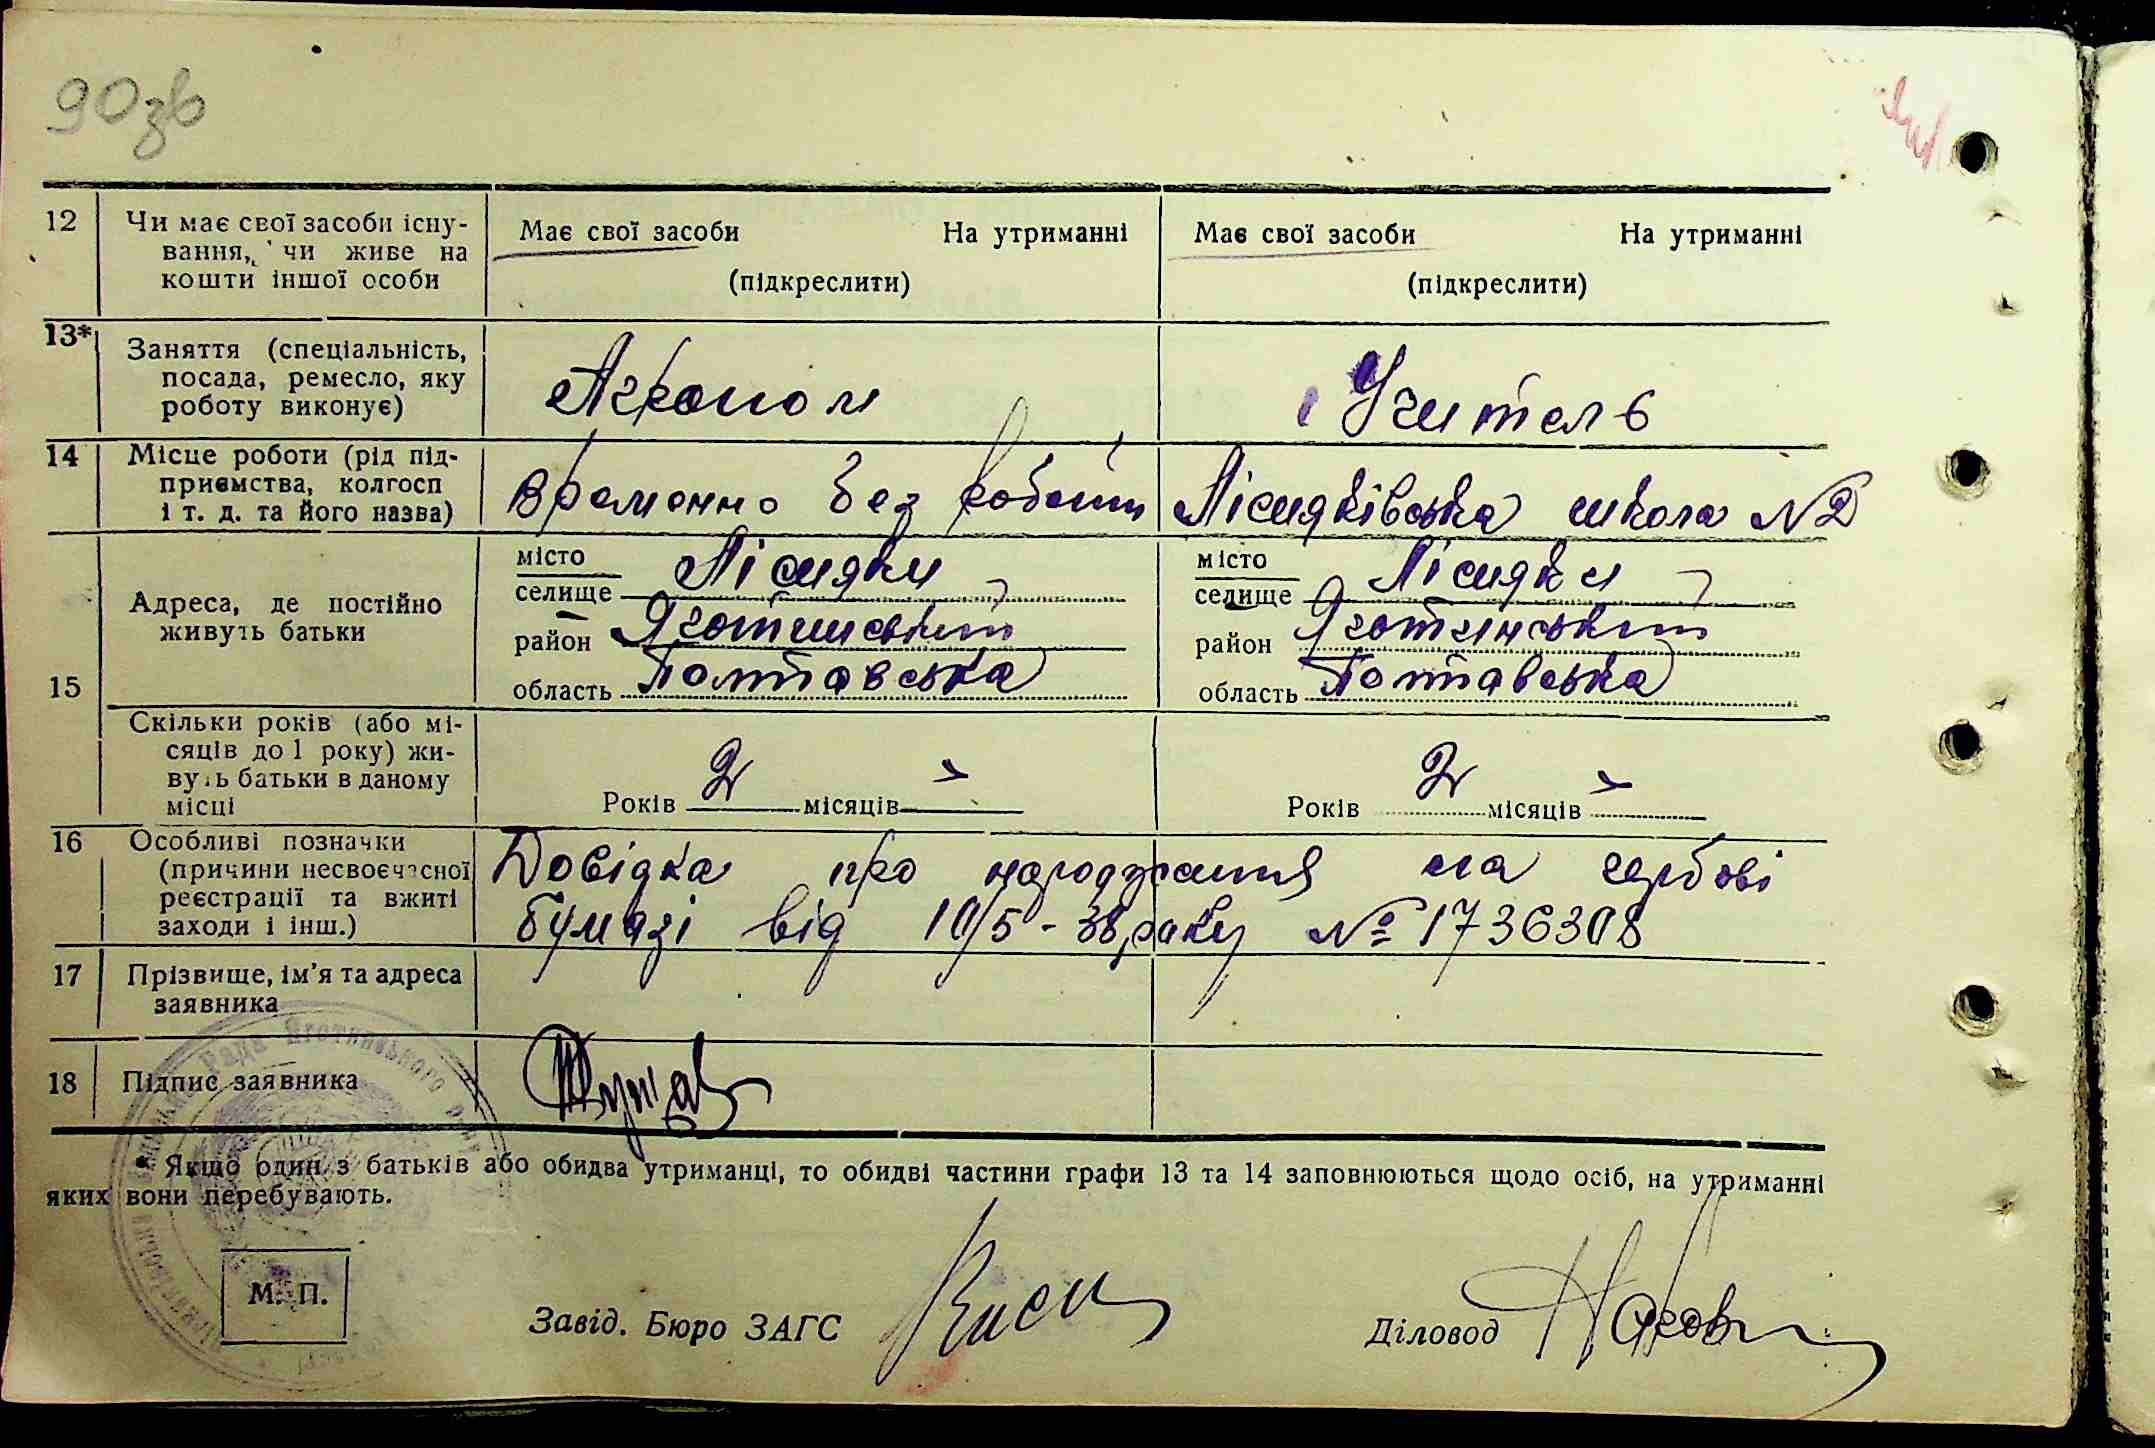 90зв
12 Чи має свої засоби існу- Має свої засоби На утриманні Має свої засоби На утриманні
вання, чи живе на
кошти іншої особи (підкреслити) (підкреслити)
13* Заняття (спеціальність,
посада, ремесло, яку Агроном Учитель
роботу виконує)
14 Місце роботи (рід під-
приємства, колгосп Временно без роботи Лісняківська школа №2
і т. д. та його назва)
15 Адреса, де постійно
живуть батьки
місто Лісняки місто Лісняки
селище селище
район Яготинський район Яготинський
область Полтавська область Полтавська
Скільки років (або мі-
сяців до 1 року) жи-
вуть батьки в даному Років 2 місяців Років 2 місяців
місці
16 Особливі позначки Довідка про народження на гербові
(причини несвоєчасної бумазі від 10/5-38 року № 1736308
реєстрації та вжиті
заходи і інш.)
17 Прізвище, ім'я та адреса
заявника
18 Підпис заявника
* Якщо один з батьків або обидва утриманці, то обидві частини графи 13 та 14 заповнюються щодо осіб, на утриманні
яких вони перебувають.
М. П.
Завід. Бюро ЗАГС Діловод
Рада Яготинського